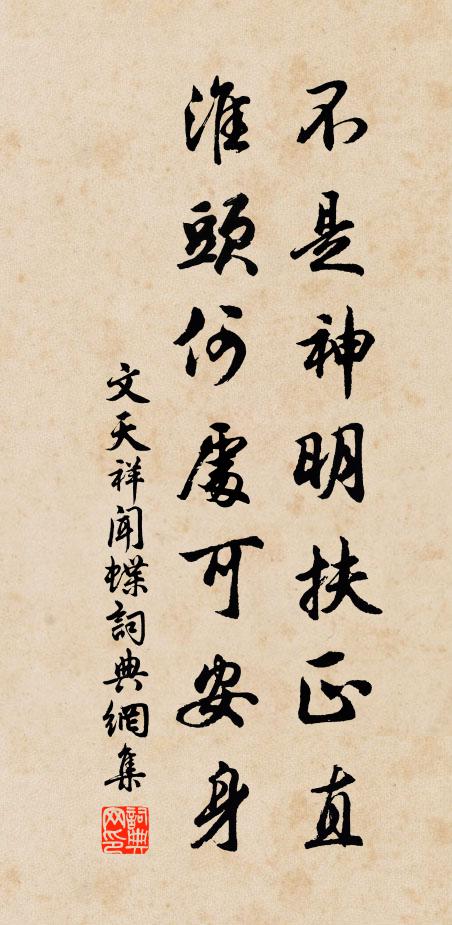 不是神明扶正直
淮頭何處可安身
文天祥聞蝶詞典網集
詞典网印